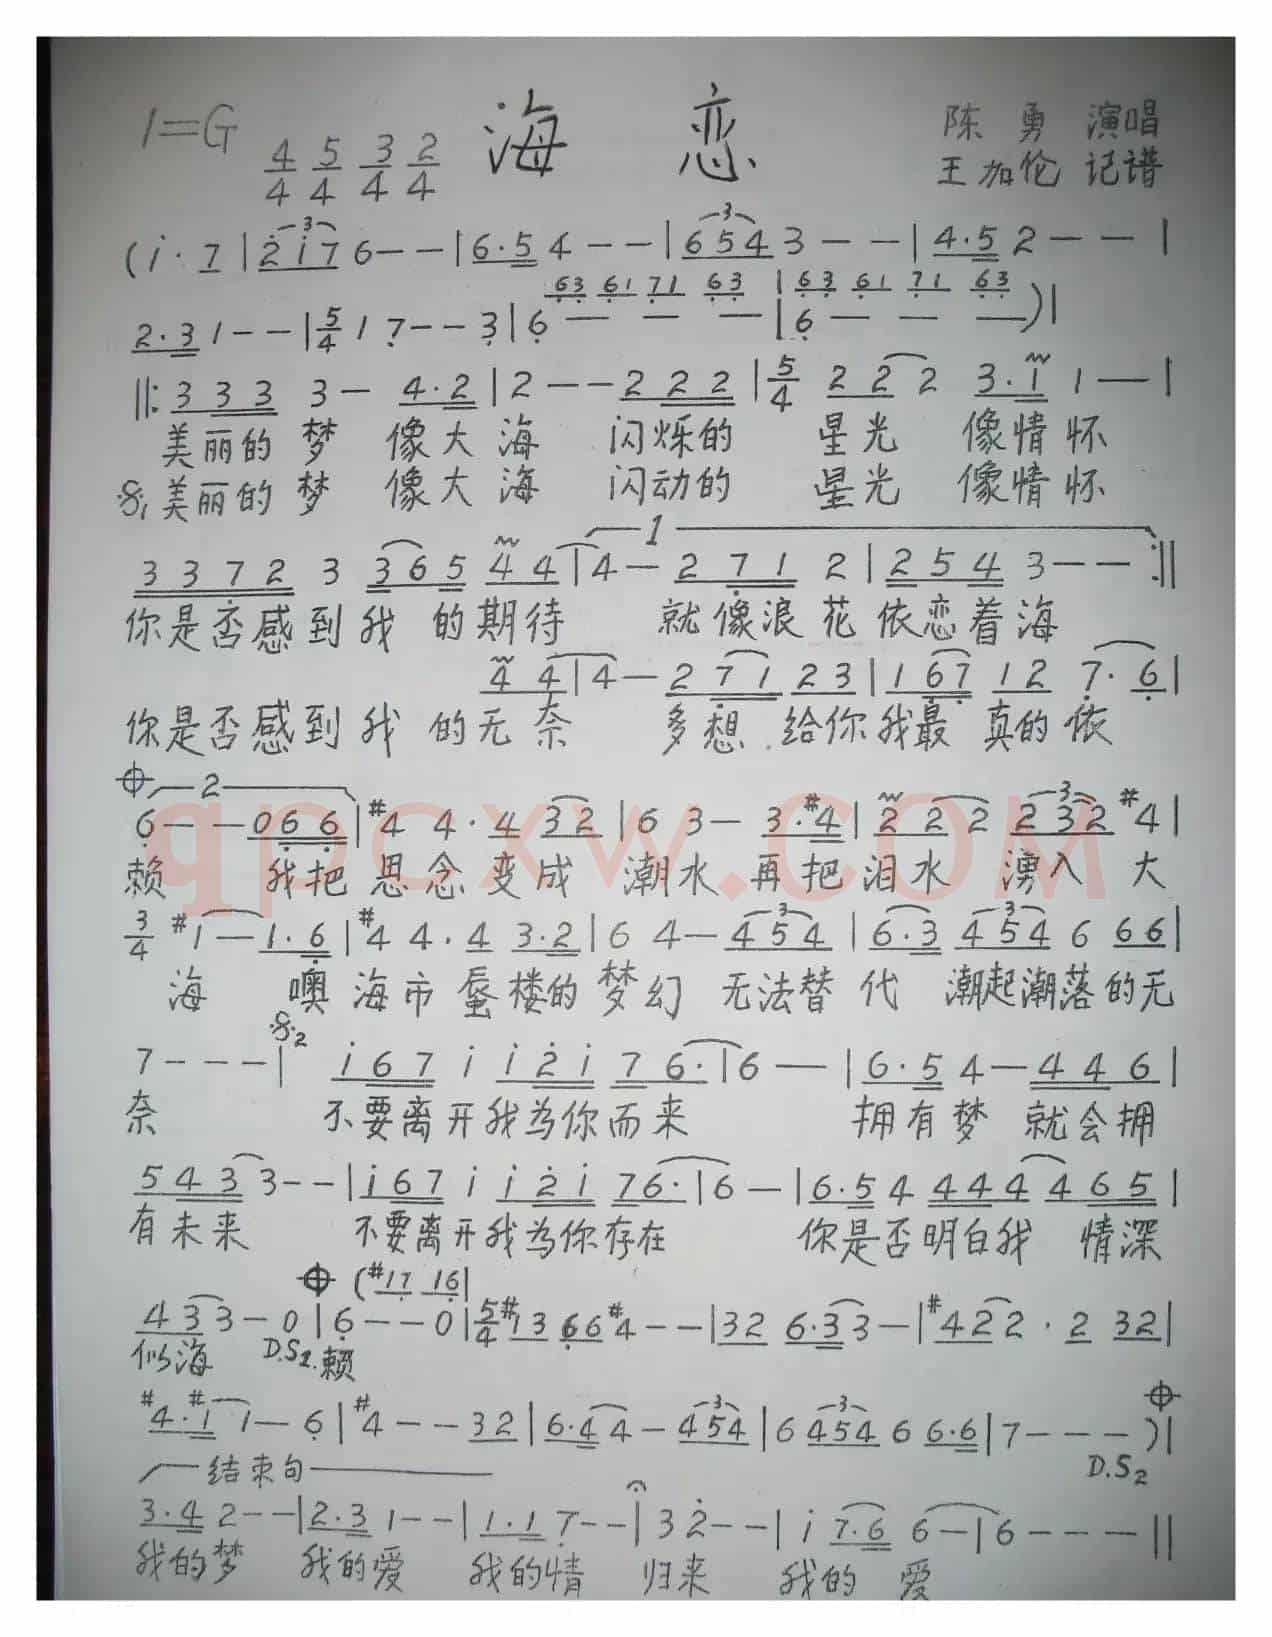 1=G 4/4 5/4 3/4 2/4 海 恋 陈勇 演唱
王加伦 记谱
(i· 7 | 2 i 7 6 - - | 6·5 4 - - | 6 5 4 3 - - | 4·5 2 - - |
63 61 71 63 | 63 61 71 63
2·3 1 - - | 5/4 1 7 - - 3 | 6 — — — | 6 — — —) |
||: 3 3 3 3 - 4·2 | 2 - - 2 2 2 | 5/4 2 2 2 3·1 1 — |
美丽的梦 像大海 闪烁的 星光 像情怀
𝄋1 美丽的梦 像大海 闪动的 星光 像情怀
1
3 3 7 2 3 3 6 5 4 4 | 4 - 2 7 1 2 | 2 5 4 3 - - :||
你是否感到我 的期待 就像浪花依恋着海
4 4 | 4 - 2 7 1 2 3 | 1 6 7 1 2 7· 6 |
你是否感到我 的无奈 多想 给你我最 真的依
2
6 - - 0 6 6 | #4 4· 4 3 2 | 6 3 - 3·#4 | 2 2 2 2 3 2 #4 |
赖 我把思念变成 潮水 再把泪水 湧入大
3/4 #1 — 1·6 | #4 4· 4 3·2 | 6 4 - 4 5 4 | 6·3 4 5 4 6 6 6 |
海 噢 海市蜃楼的梦幻 无法替代 潮起潮落的无
𝄋2
7 - - - | i 6 7 i i 2 i 7 6· | 6 — | 6·5 4 - 4 4 6 |
奈 不要离开我为你而来 拥有梦 就会拥
5 4 3 3 - - | i 6 7 i i 2 i 7 6· | 6 - | 6·5 4 4 4 4 4 6 5 |
有未来 不要离开我为你存在 你是否明白我 情深
(#17 16 |
4 3 3 - 0 | 6 - - 0 | 5/4 #1 3 6 6 #4 - - | 3 2 6·3 3 - | #4 2 2 · 2 3 2 |
似海 D.S2. 赖
#4·#1 1 - 6 | #4 - - 3 2 | 6·4 4 - 4 5 4 | 6 4 5 4 6 6·6 | 7 - - - ) |
D.S2
结束句
3·4 2 - - | 2·3 1 - - | 1·1 7 - - | 3 2 - - | i 7·6 6 - | 6 - - - ||
我的梦 我的爱 我的情 归来 我的 爱
qpcxw.com